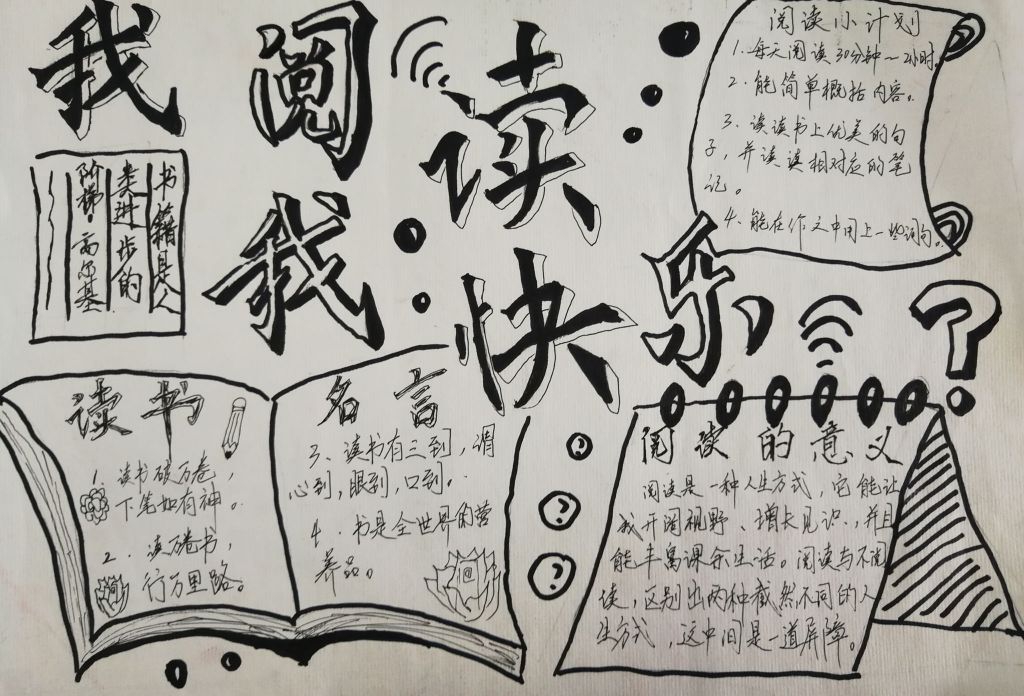 我阅读
我快乐
书籍是人
类进步的
阶梯。高尔基
阅读小计划
1、每天阅读30分钟～2小时。
2、能简单概括内容。
3、读读书上优美的句
子,并读读相对应的笔
记。
4、能在作文中用上一些词句。
读书
1、读书破万卷,
下笔如有神。
2、读万卷书,
行万里路。
名言
3、读书有三到,谓
心到,眼到,口到。
4、书是全世界的营
养品。
阅读的意义
阅读是一种人生方式,它能让
我开阔视野、增长见识,并且
能丰富课余生活。阅读与不阅
读,区别出两种截然不同的人
生方式,这中间是一道屏障。